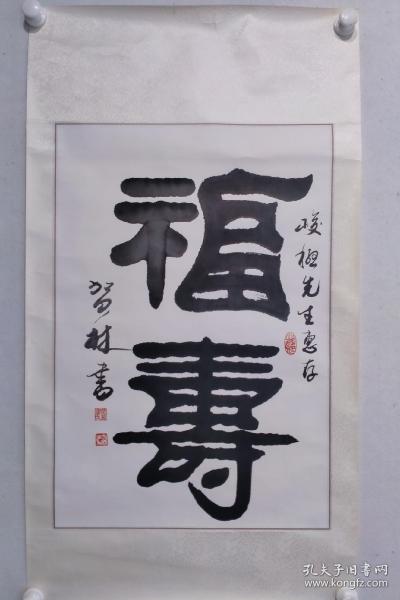 福壽
峻極先生惠存
贺林書
孔夫子旧書网
www.kongfz.com